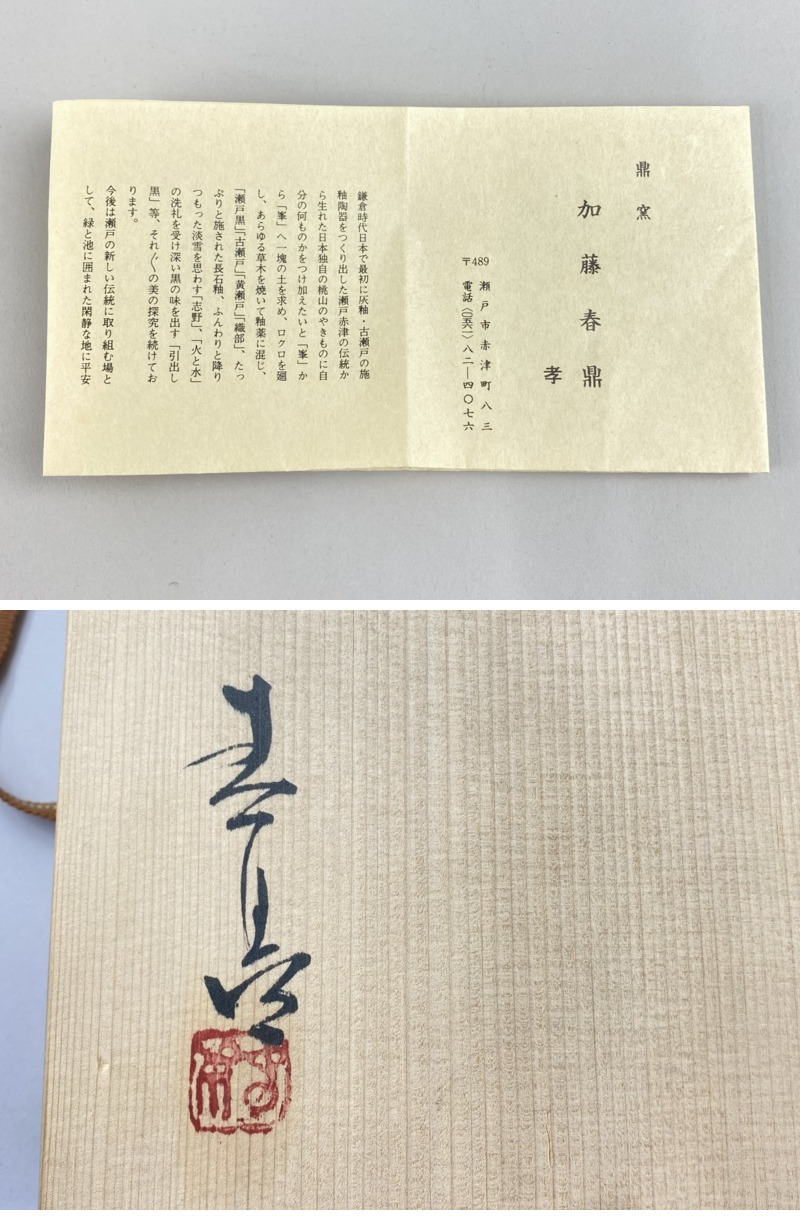 鼎窯
加藤春鼎
孝
〒489
瀬戸市赤津町八三
電話(〇五六一)八二―四〇七六
鎌倉時代日本で最初に灰釉・古瀬戸の施
釉陶器をつくり出した瀬戸赤津の伝統か
ら生れた日本独自の桃山のやきものに自
分の何ものかをつけ加えたいと「峯」か
ら「峯」へ一塊の土を求め、ロクロを廻
し、あらゆる草木を焼いて釉薬に混じ、
「瀬戸黒」「古瀬戸」「黄瀬戸」「織部」、たっ
ぷりと施された長石釉、ふんわりと降り
つもった淡雪を思わす「志野」、「火と水」
の洗礼を受け深い黒の味を出す「引出し
黒」等、それ〴〵の美の探究を続けてお
ります。
今後は瀬戸の新しい伝統に取り組む場と
して、緑と池に囲まれた閑静な地に平安
春鼎